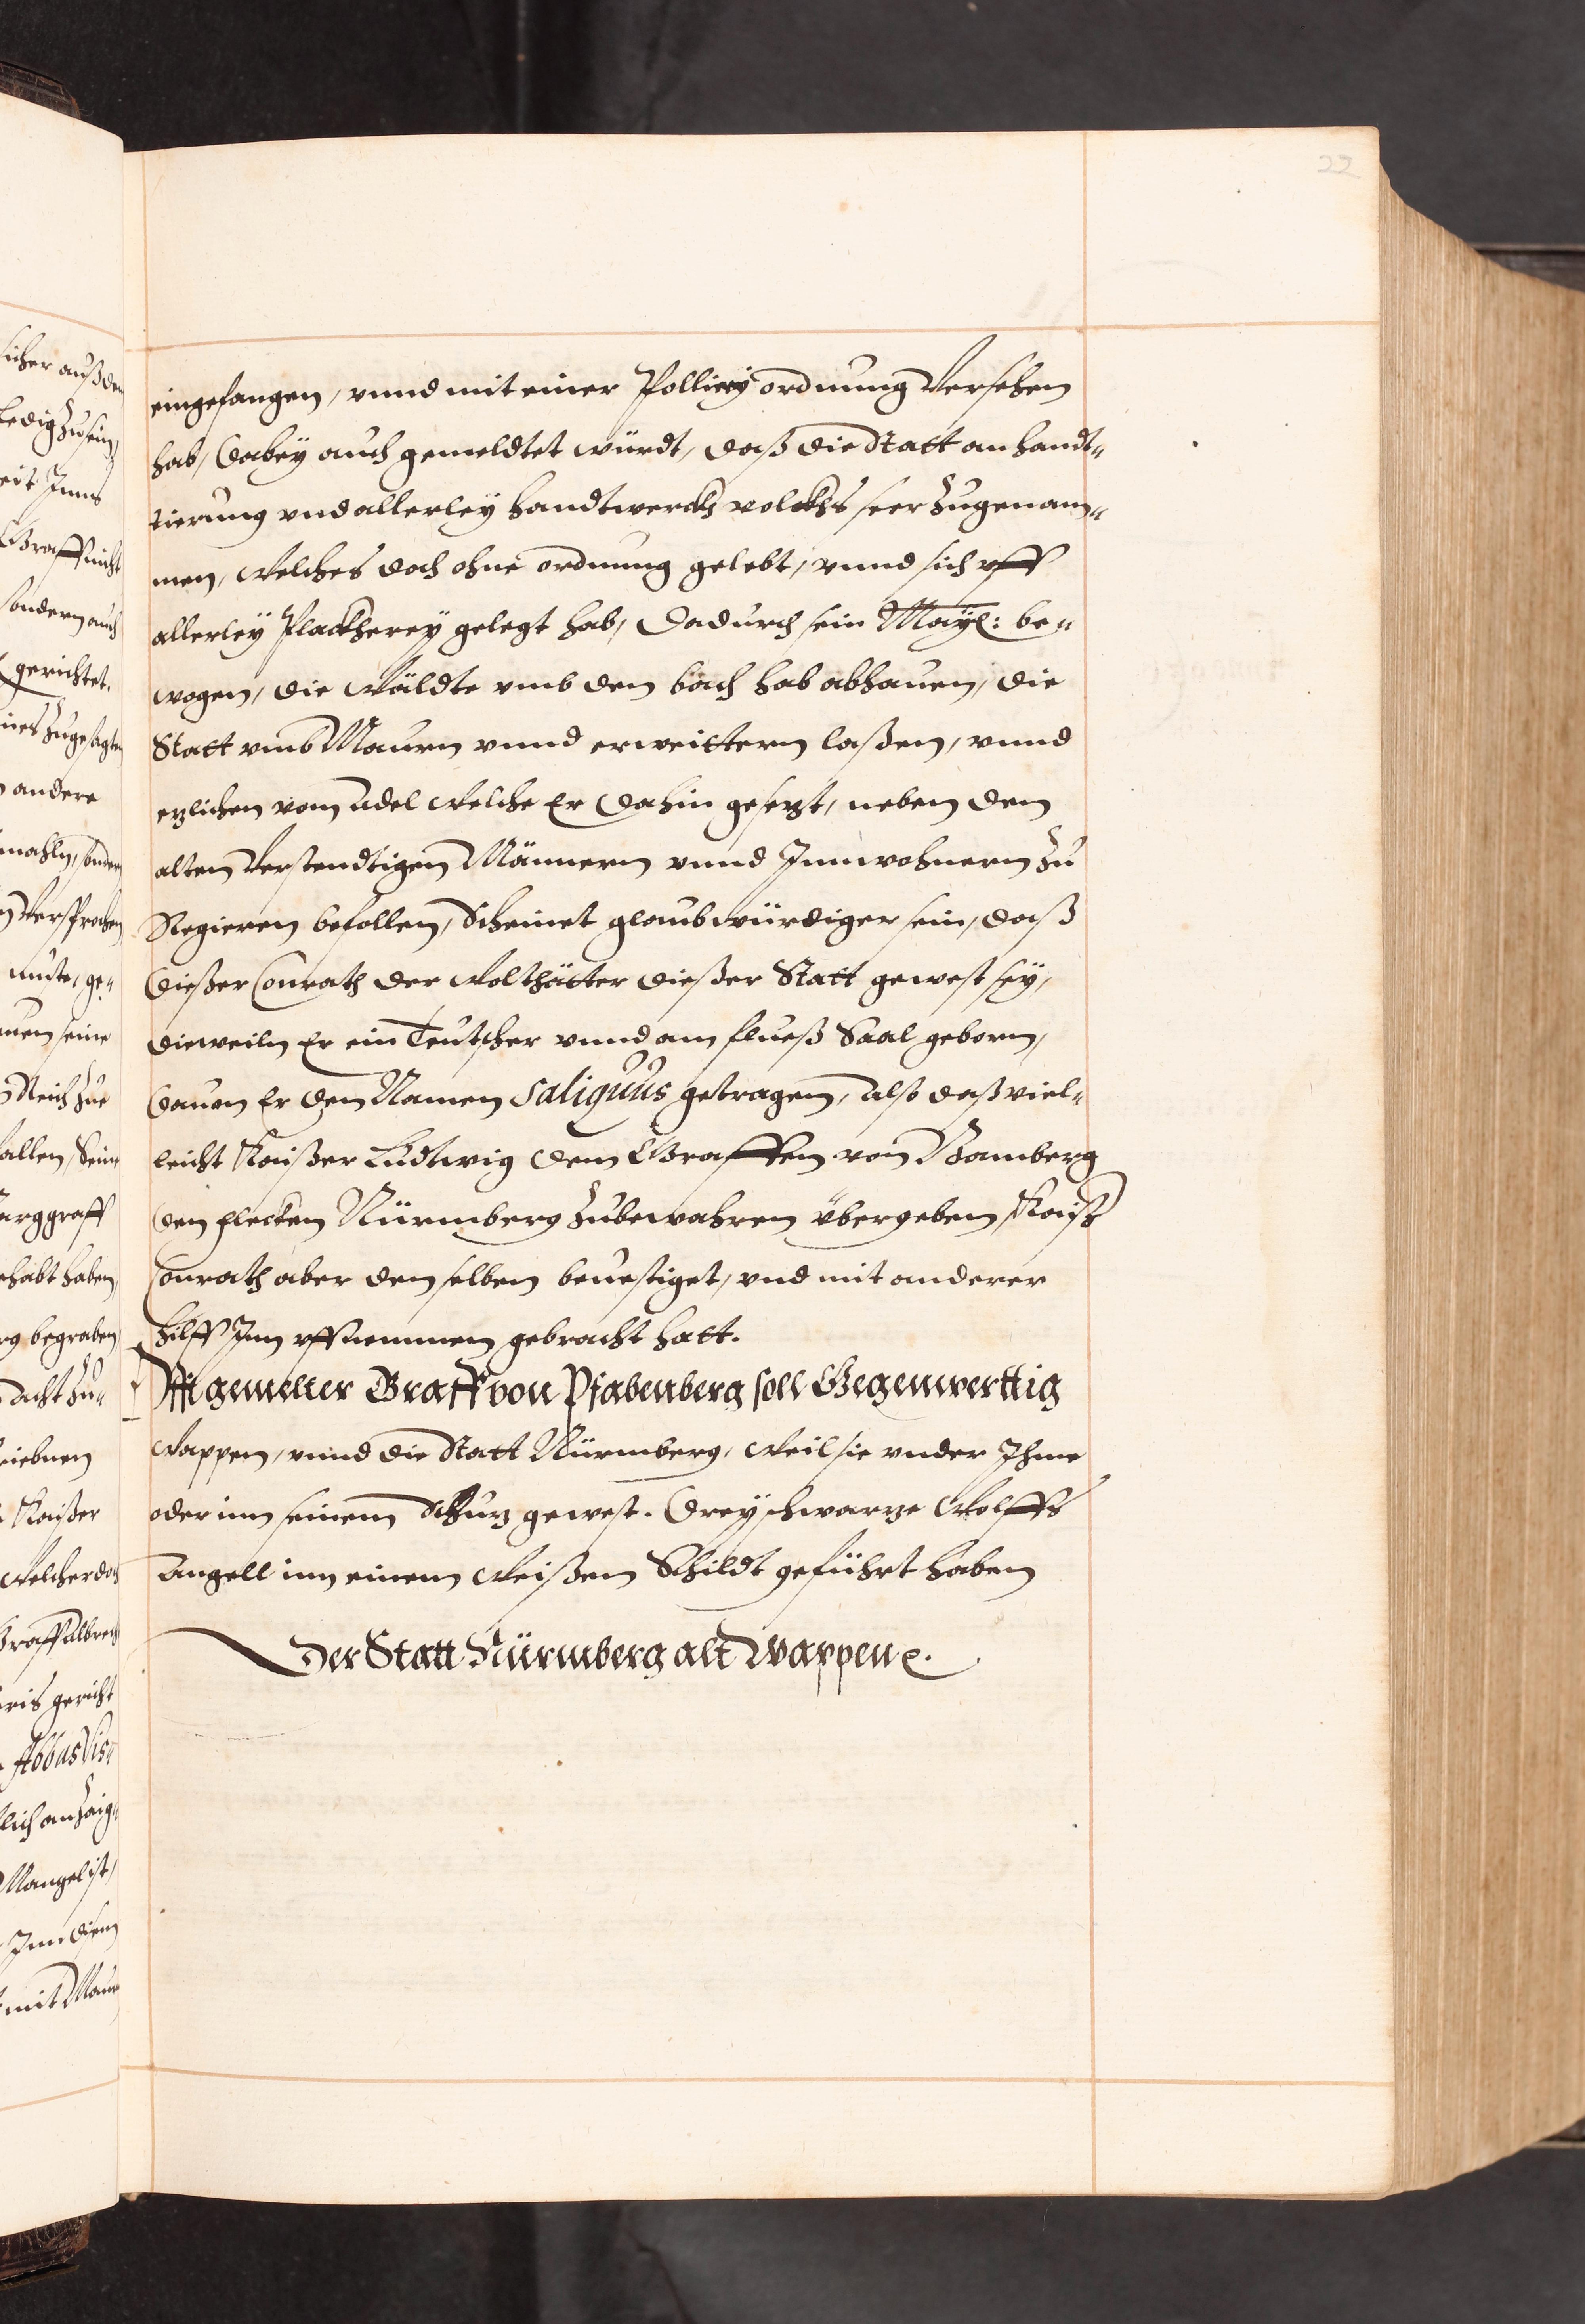 22
eingefangen, vnnd mit einer Pollicey ordnung Versehen
hab, Dabey auch gemeldtet würdt, daß die Statt an handt„
tierung vnd allerley handtwerckh volckhs seer zugenam„
men, welches doch ohne ordnung gelebt, vnnd sich vff
allerley Plackherey gelegt hab, Dadurch sein May: be„
wogen, die Wäldte vmb den bach hab abhauen, die
Statt vmb Mauren vnnd erweittern laßen, vnnd
ezlichen vom Adel welche Er dahin gesezt, neben den
alten Verstendtigen Männern vnnd Innwohnern zu
Regieren befollen, Scheinet glaubwürdiger sein, daß
dießer Conrath der Wolthätter dießer Statt gewest sey,
dieweiln Er ein Teutscher vnnd am flueß Saal geborn,
dauon Er den Namen Saliquus getragen, Also daß viel„
leicht Kaißer Ludtwig dem Graffen von Bamberg
den flecken Nürmberg zubewahren übergeben, Kaiß
Conrath aber denselben beuestiget, vnd mit anderer
hilff Inn vffnemmen gebracht hatt.
gemelter Graff von Pfabenberg soll Gegenwerttig
Wappen, vnnd die Statt Nürmberg, Weil sie vnder Ihme
oder inn seinem Schuz gewest. Drey schwarze Wolffs
Angell inn einem Weißen Schildt geführt haben
Der Statt Nürmberg alt Wappen.